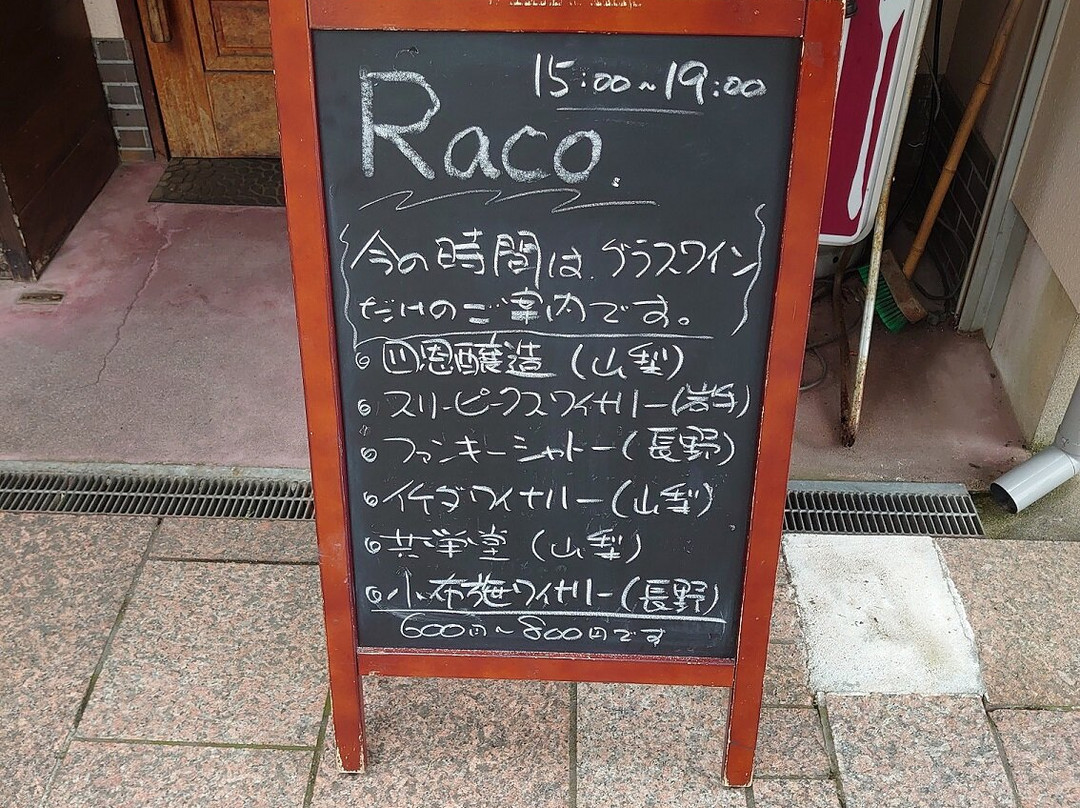 15:00~19:00
Raco.
今の時間は、グラスワイン
だけのご案内です。
四恩醸造 (山梨)
スリーピークスワイナリー(岩手)
ファンキーシャトー(長野)
イケダワイナリー(山梨)
共栄堂 (山梨)
小布施ワイナリー(長野)
600円~800円です